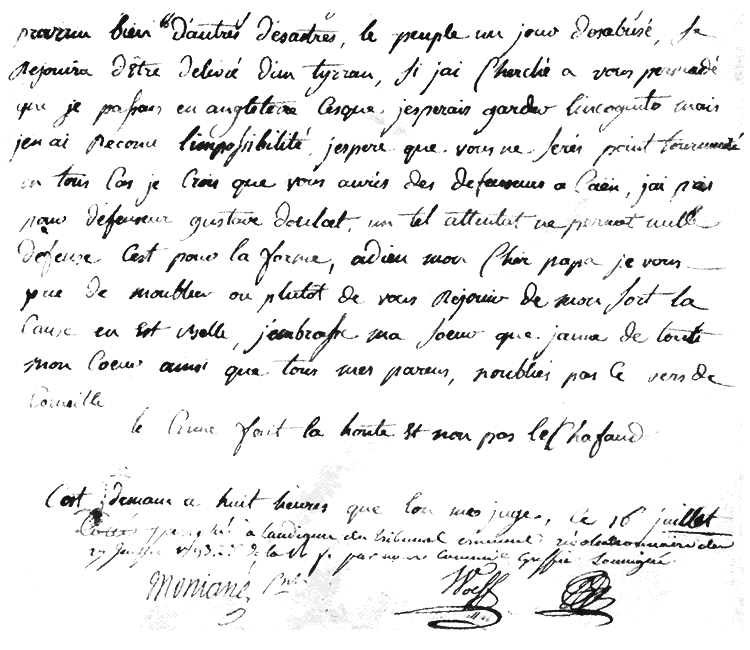 prevenu bien d'autres désastres, le peuple un jour desabusé, se
Rejouira d'être delivré d'un tyrran, Si j'ai Cherché a vous persuadé
que je passais en angleterre Cesque jesperais garder lincognito mais
jen ai Reconu limpossibilité, jespere que vous ne serés point tourmenté
en tous Cas je Crois que vous aurés des defenseurs a Caën, j'ai pris
pour défenseur gustave doulcet, un tel attentat ne permet nulle
défense Cest pour la forme, adieu mon Cher papa je vous
prie de moublier ou plutot de vous Rejouir de mon sort la
Cause en Est belle, j'embrasse ma soeur que jaime de tout
mon Coeur ainsi que tous mes parens, noubliés pas Ce vers de
Corneille
le Crime fait la honte Et non pas lEchafaud
Cest demain a huit heures que lon me juge, Ce 16 juillet
a laudience du tribunal criminel révolutionnaire du
17 juillet 1793 de la R. f. par nous Commis Greffier Soussigné
Montané
Wolff